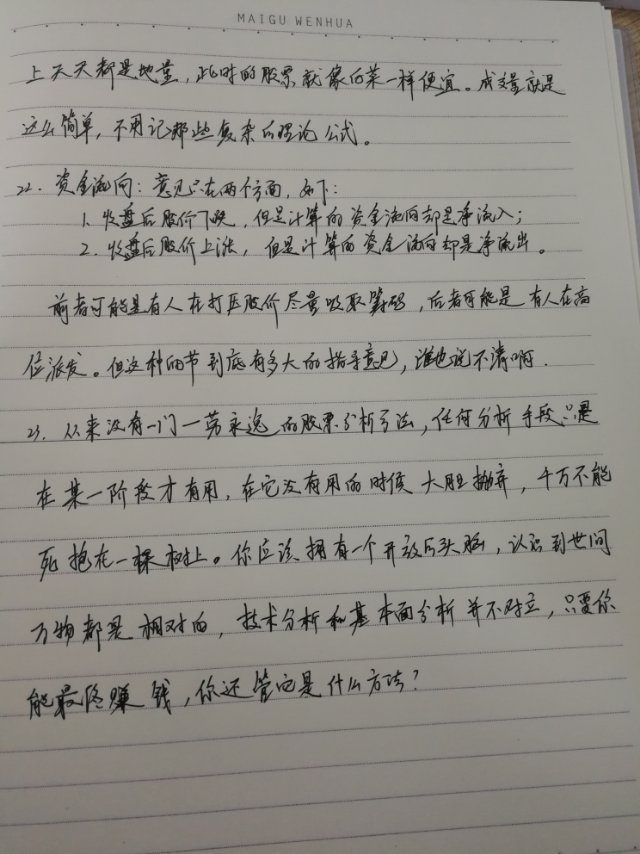 MAIGU WENHUA
上天天都是地量，此时的股票就像白菜一样便宜。成交量就是
这么简单，不用记那些复杂的理论公式。
22. 资金流向：意见只在两个方面，如下：
1. 收盘后股价下跌，但是计算的资金流向却是净流入；
2. 收盘后股价上涨，但是计算的资金流向却是净流出。
前者可能是有人在打压股价尽量吸取筹码，后者可能是有人在高
位派发。但这种细节到底有多大的指导意见，谁也说不清啊.
23. 从来没有一门一劳永逸的股票分析方法，任何分析手段只是
在某一阶段才有用，在它没有用的时候大胆抛弃，千万不能
死抱在一棵树上。你应该拥有一个开放的头脑，认识到世间
万物都是相对的，技术分析和基本面分析并不对立，只要你
能最终赚钱，你还管它是什么方法？